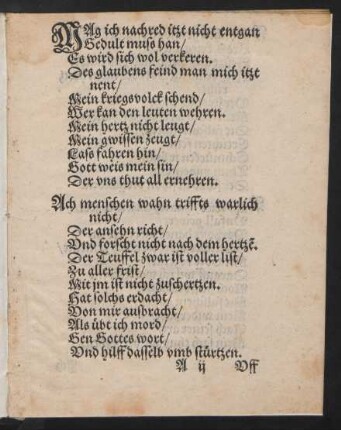 MAg ich nachred itzt nicht entgan
Gedult muſs han/
Es wird ſich wol verkeren.
Des glaubens feind man mich itzt
nent/
Mein kriegsvolck ſchend/
Wer kan den leuten wehren.
Mein hertz nicht leugt/
Mein gwiſſen zeugt/
Laſs fahren hin/
Gott weis mein ſin/
Der vns thut all ernehren.
Ach menſchen wahn triffts warlich
nicht/
Der anſehn richt/
Vnd forſcht nicht nach dem hertzē.
Der Teuffel zwar iſt voller liſt/
Zu aller friſt/
Mit jm iſt nicht zuſchertzen.
Hat ſolchs erdacht/
Von mir auſbracht/
Als übt ich mord/
Gen Gottes wort/
Vnd hilff daſſelb vmb ſtürtzen.
A ij Vff